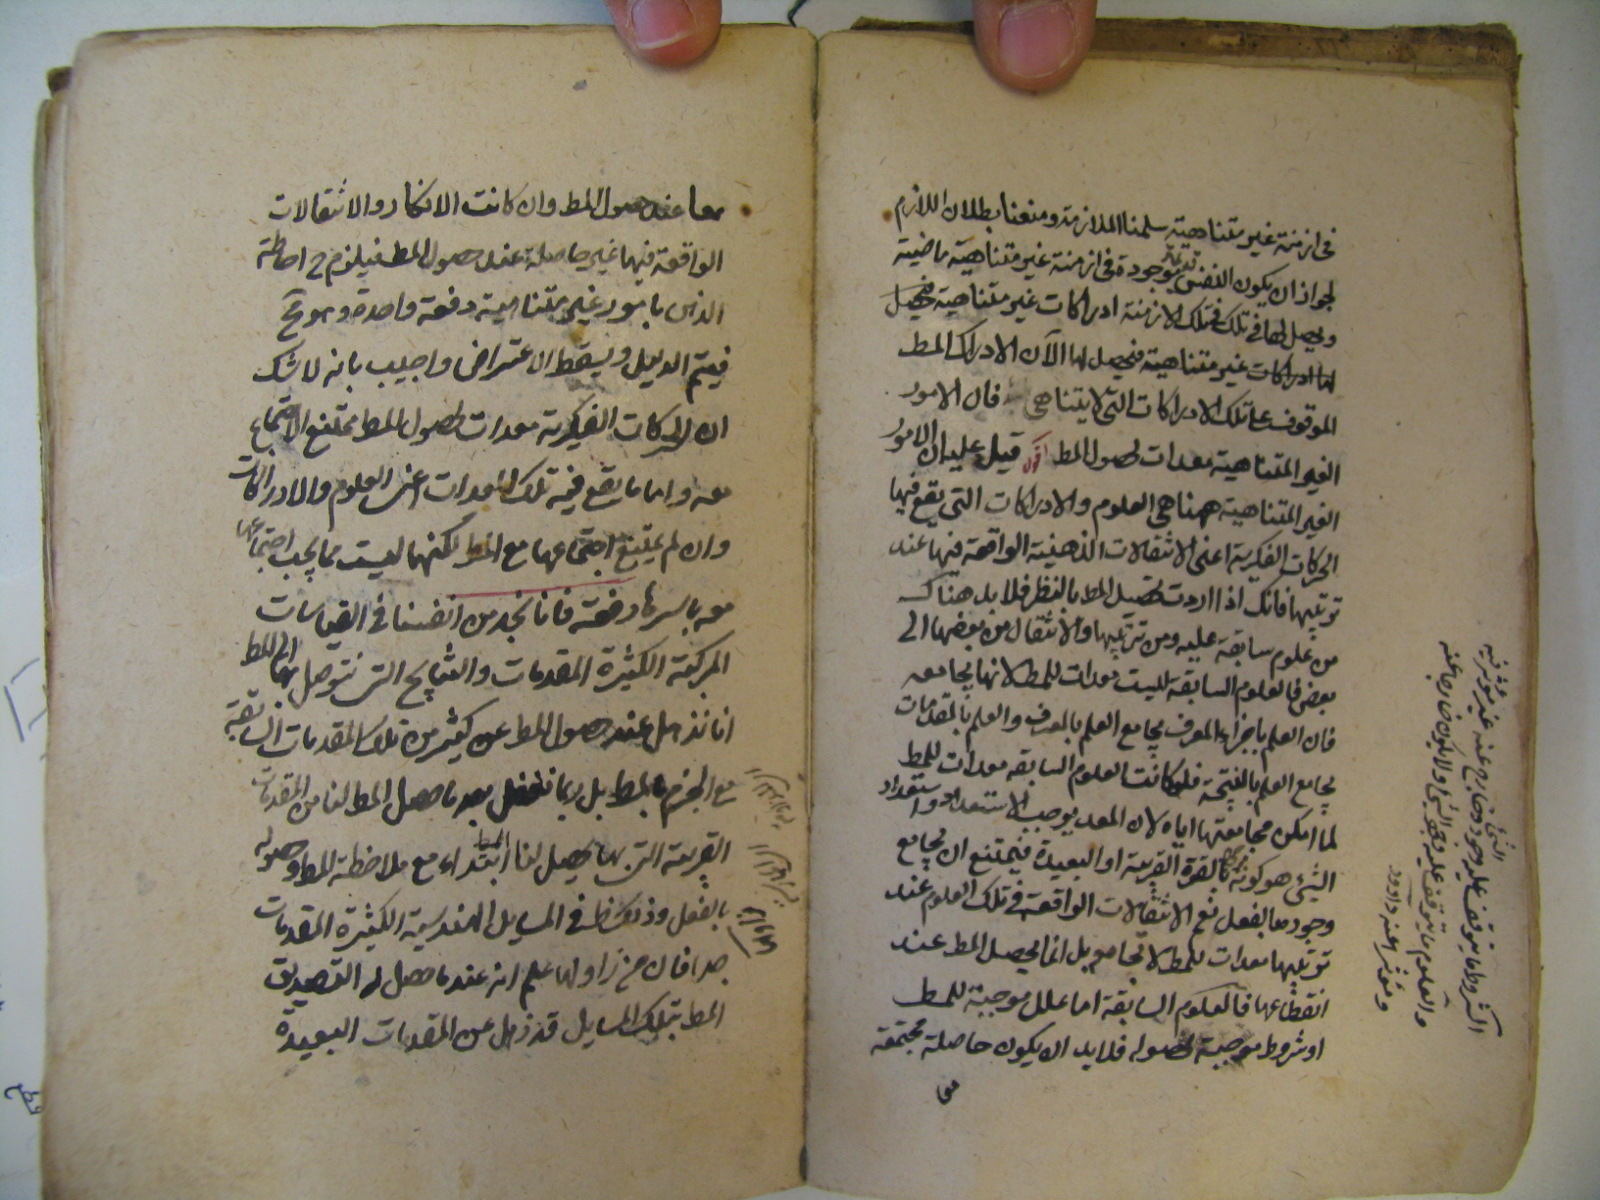 فى ازمنة غير متناهية سلمنا الملازمة ومنعنا بطلان اللازم
لجواز ان يكون النفس قديمة موجودة فى ازمنة غير متناهية ماضية
ويحصل لها فى تلك فى تلك الازمنة ادراكات غير متناهية فيحصل
لها ادراكات غير متناهية فيحصل لها الآن الادراك المط
الموقوف على تلك الادراكات التى لا يتناهى قال الامور
الغير المتناهية معدات لحصول المط اقول قيل عليه ان الامور
الغير المتناهية ههنا هى العلوم والادراكات التى يقع فيها
الحركات الفكرية اعنى الانتقالات الذهنية الواقعة فيها عند
ترتيبها فانك اذا اردت تحصيل المط بالنظر فلابد هناك
من علوم سابقة عليه ومن ترتيبها والانتقال من بعضها الى
بعض فالعلوم السابقة ليست معدات للمط لانها يجامعه
فان العلم باجزاء المعرف يجامع العلم بالمعرف والعلم بالمقدمات
يجامع العلم بالنتيجة فلو كانت العلوم السابقة معدات للمط
لما امكن مجامعتها اياه لان المعد يوجب الاستعداد واستعداد
الشئ هو كونه بالقوة القريبة او البعيدة فيمتنع ان يجامع
وجودها بالفعل نعم الانتقالات الواقعة فى تلك العلوم عند
ترتيبها معدات للمط لا تجامعه بل انما يحصل المط عند
انقطاعها فالعلوم السابقة اما علل موجبة للمط
او شروط موجبة لحصوله فلابد ان يكون حاصلة مجتمعة
معا
الشرط ما يتوقف عليه وجود
معا عند حصول المط وان كانت الافكار والانتقالات
الواقعة فيها غير حاصلة عند حصول المط فيلزم ح احاطة
الذهن بامور غير متناهية دفعة واحدة وهو مح
فيتم الدليل ويسقط الاعتراض واجيب بانه لا شك
ان الحركات الفكرية معدات لحصول المط يمتنع الاجتماع
معه واما ما يقع فيه تلك المعدات اعنى العلوم والادراكات
وان لم يمتنع اجتماعها مع المط لكنها ليست مما يجب اجتماعها
معه باسرها دفعة فانا نجد من انفسنا فى القياسات
المركبة الكثيرة المقدمات والنتايج التى نتوصل بها الى المط
انا نذهل عند حصول المط عن كثير من تلك المقدمات السابقة
مع الجزم بالمط بل ربما نغفل بعد ما حصل المط لنا من المقدمات
القريبة التى بها يحصل لنا المط ابتداء مع ملاحظة المط وحصوله
بالفعل وذلك ظ فى المسايل الهندسية الكثيرة المقدمات
جدا فان من زاولها علم انه عند ما حصل له التصديق
المط بتلك المسايل قد ذهل عن المقدمات البعيدة